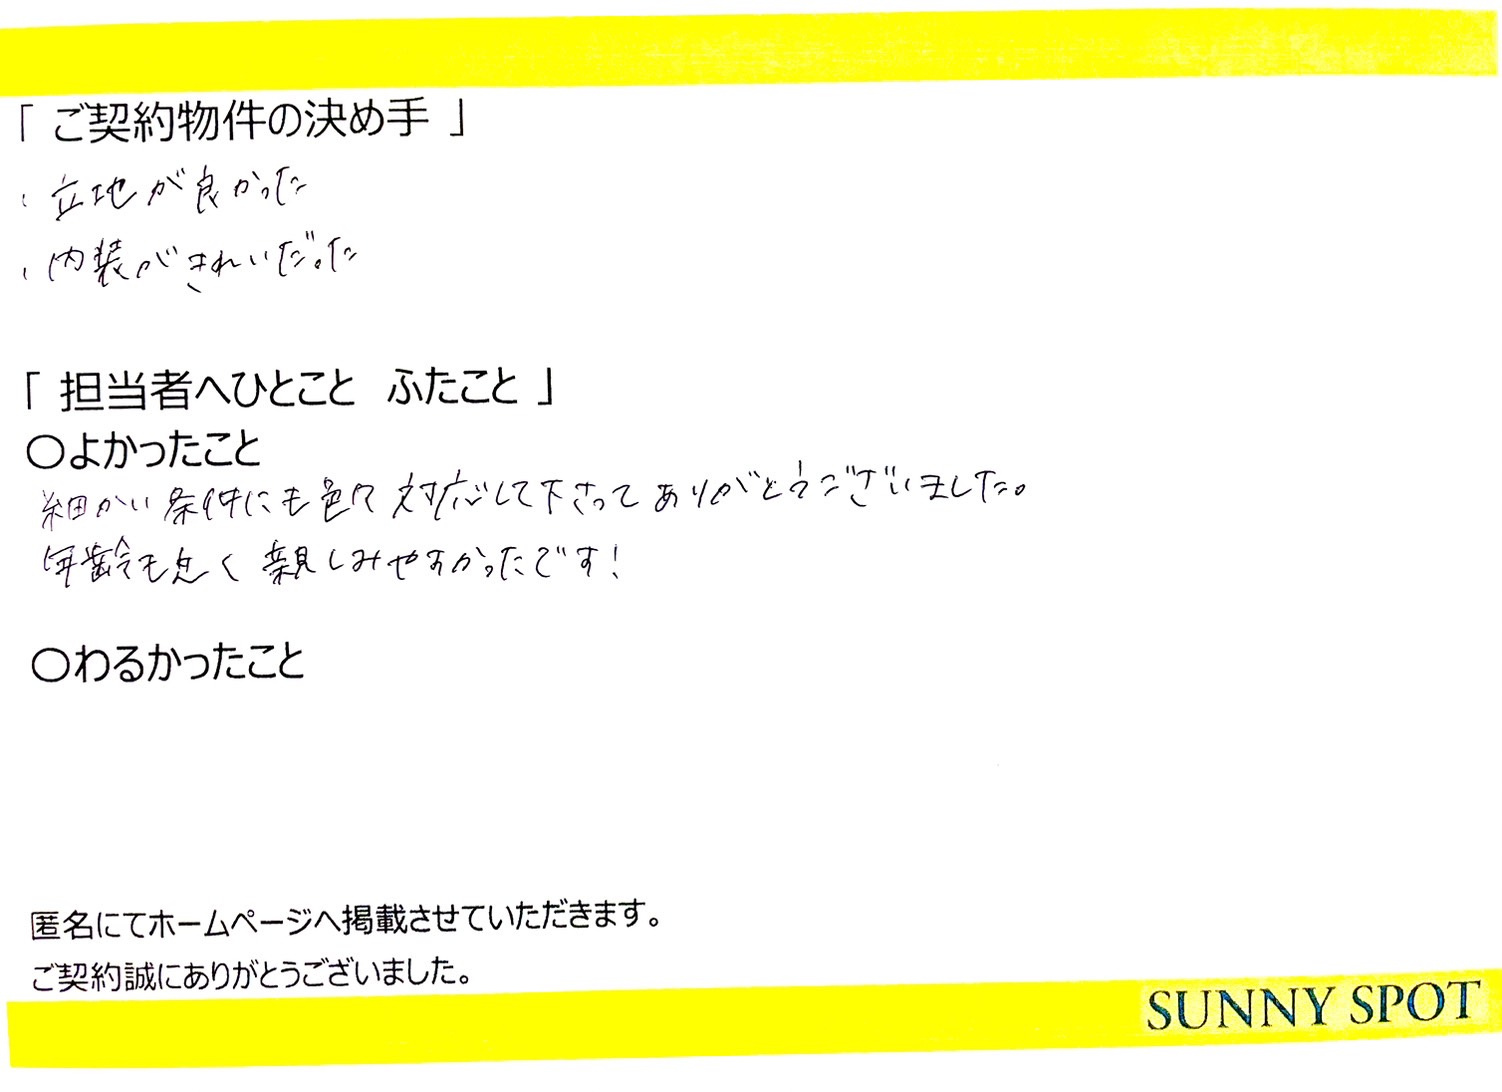 「 ご契約物件の決め手 」
・立地が良かった
・内装がきれいだった
「 担当者へひとこと ふたこと 」
〇よかったこと
細かい条件にも色々対応して下さってありがとうございました。
年齢も近く親しみやすかったです!
〇わるかったこと
匿名にてホームページへ掲載させていただきます。
ご契約誠にありがとうございました。
SUNNY SPOT